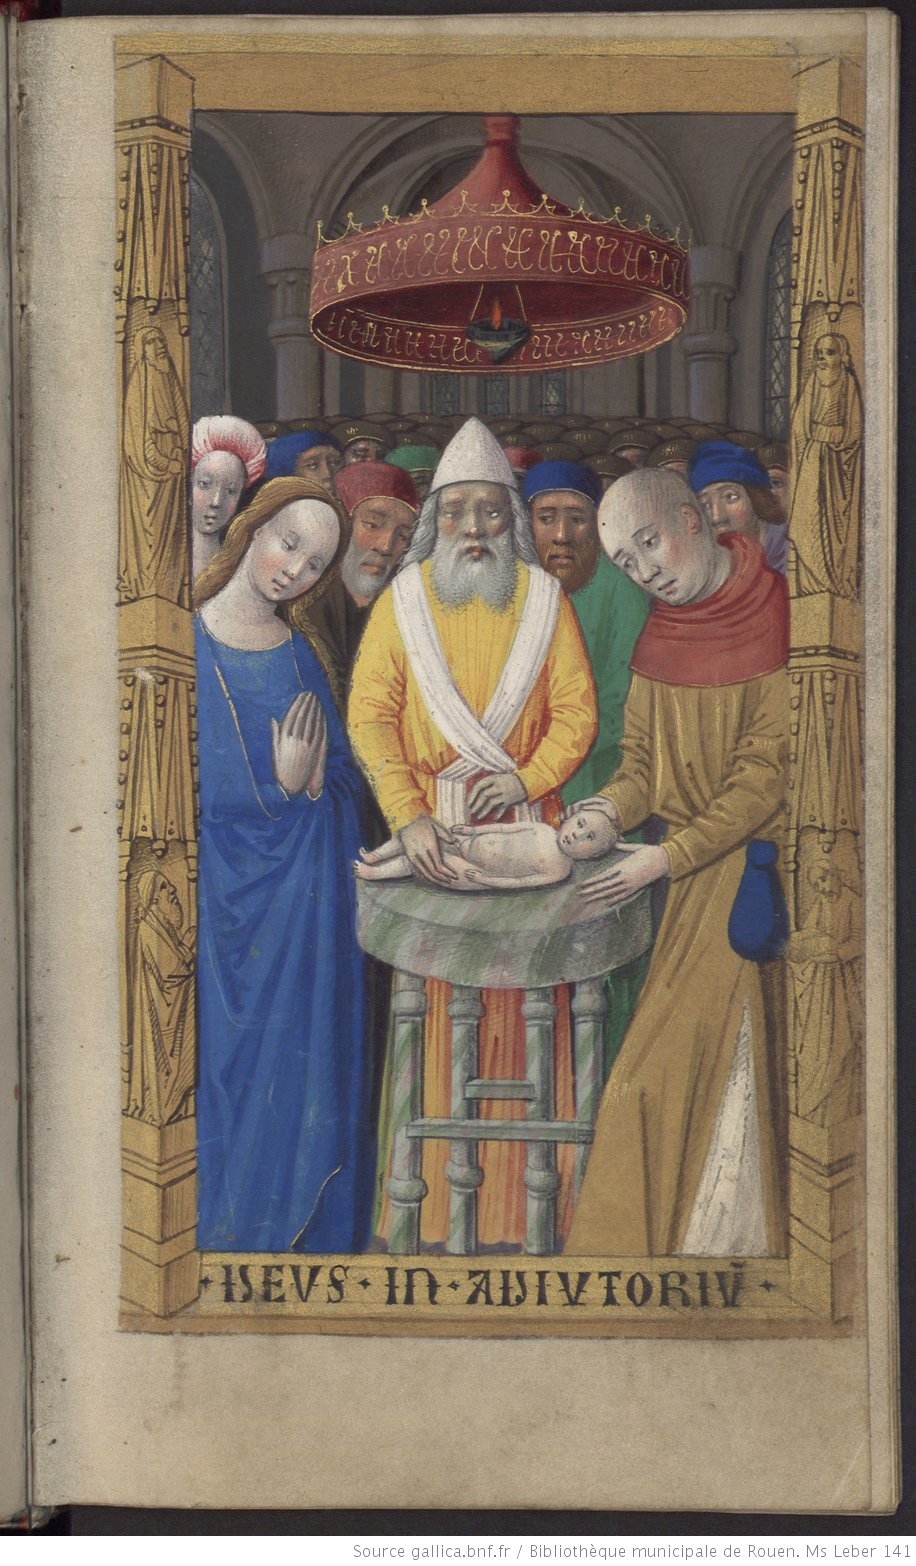 · DEVS · IN · ADIVTORIV̄ ·
Source gallica.bnf.fr / Bibliothèque municipale de Rouen. Ms Leber 141